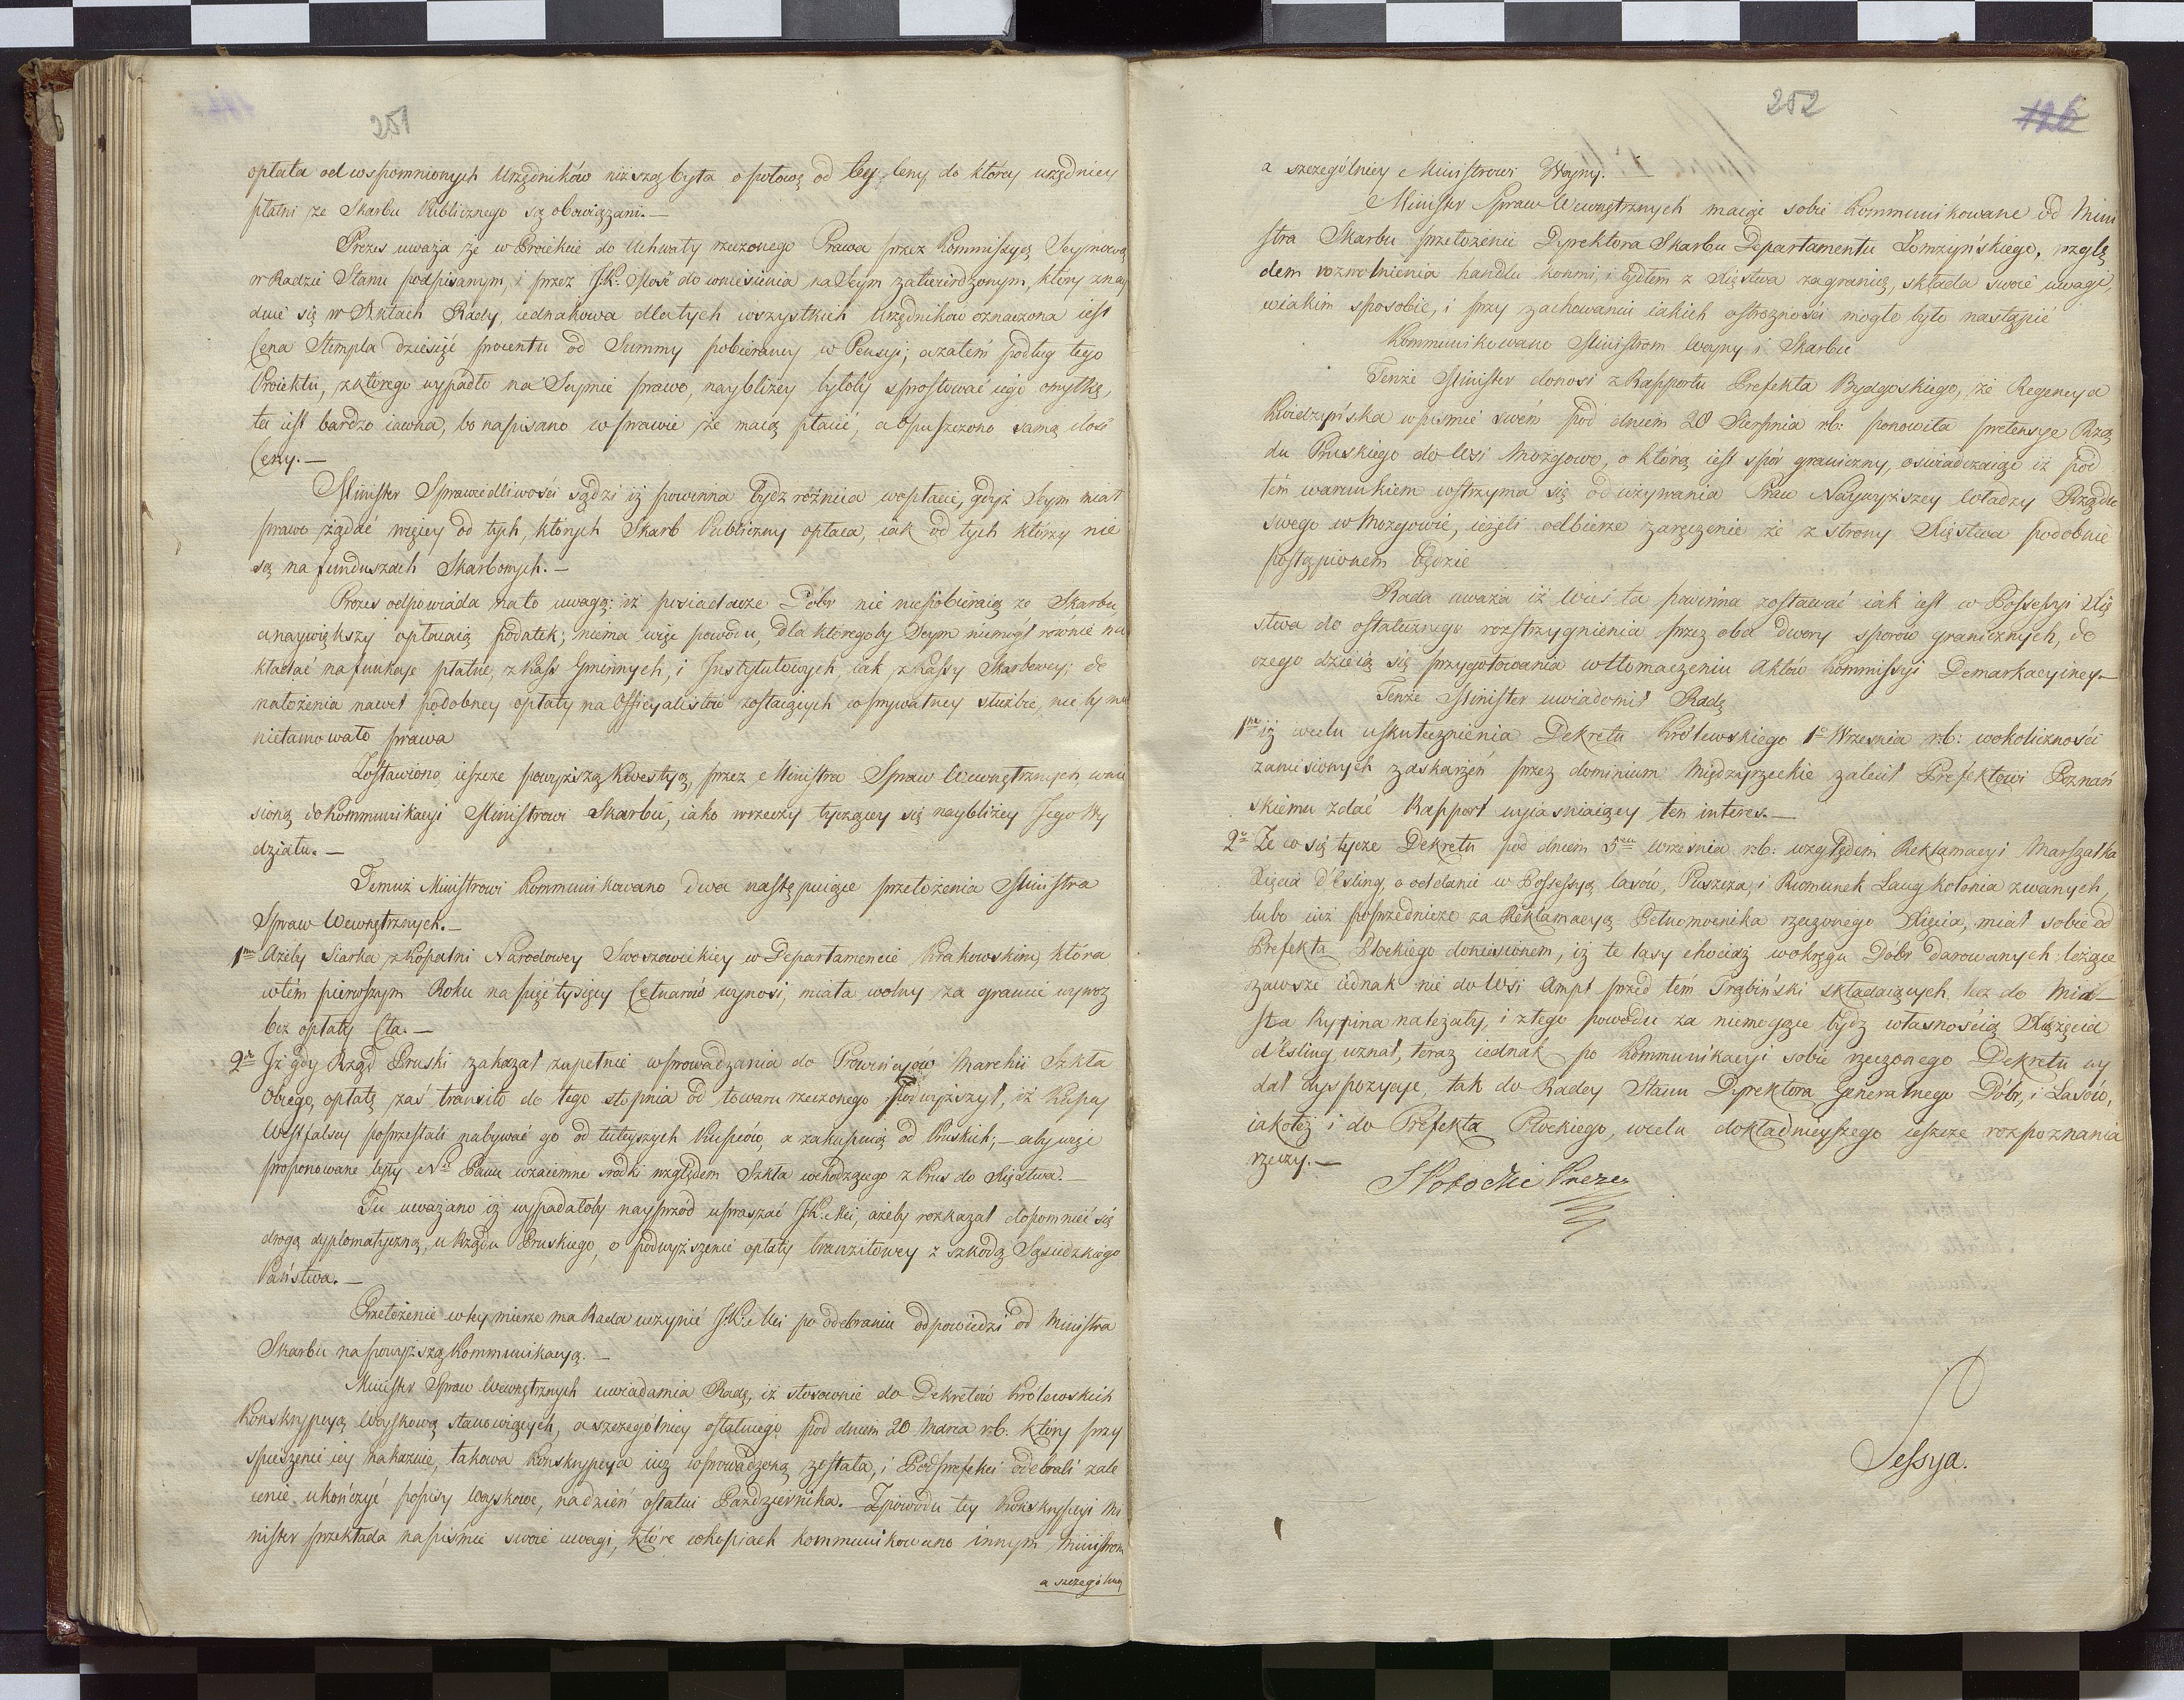 251
opłata od wspomnionych Urzędników niższą była o połowę od tey ceny do którey urzędnicy
płatni ze Skarbu Publicznego są obowiązani.—
Prezes uważa że w Proiekcie do Uchwały rzeczonego Prawa przez Kommissyą Seymową
w Radzie Stanu podpisanym, i przez J.K. Mość do wniesienia na Seym zatwierdzonym, który znay
duie się w Aktach Rady, iednakowa dla tych wszystkich Urzędników oznaczona iest
Cena Stempla dziesięć procentu od Summy pobieraney w Pensyi; a zatem podług tego
Proiektu, z którego wypadło na Seymie prawo, naybliżey byłoby sprostować iego omyłkę,
ta iest bardzo iawna, bo napisano w prawie że maią płacić, a opuszczono samą ilość
Ceny.—
Minister Sprawiedliwości sądzi iż powinna bydź różnica w opłacie, gdyż Seym miał
prawo żądać więcey od tych, których Skarb Publiczny opłaca, iak od tych którzy nie
są na funduszach Skarbowych.—
Prezes odpowiada na to uwagą: iż posiadacze Dóbr nic niepobieraią ze Skarbu,
a naywiększy opłacaią podatek; niema więc powodu, dla któregoby Seym niemógł równie na
kładać na funkcye płatne, z Kass Gminnych, i Instytutowych, iak z Kassy Skarbowey; do
nałożenia nawet podobney opłaty na Officyalistów zostaiących w prywatney służbie, nic by mu
nietamowało prawa
Zostawiono ieszcze powyższą kwestyą, przez Ministra Spraw Wewnętrznych wnie
sioną do Kommunikacyi Ministrowi Skarbu, iako w rzeczy tyczącey się naybliżey Jego Wy
działu.—
Temuż Ministrowi Kommunikowano dwa następuiące przełożenia Ministra
Spraw Wewnętrznych.—
1mo Ażeby Siarka z Kopalni Narodowey Swoszowickiey w Departamencie Krakowskim, która
w tém pierwszym Roku na pięć tysięcy Cetnarów wynosi, miała wolny za granicę wywoz
bez opłaty Cła.—
2do Iż gdy Rząd Pruski zakazał zupełnie wprowadzania do Prowincyów Marchii Szkła
Obcego, opłatę zaś transito do tego stopnia od towaru rzeczonego podwyższył, iż Kupcy
Westfalscy poprzestali nabywać go od tuteyszych Kupców, a zakupuią od Pruskich;—aby więc
proponowane były N. Panu wzaiemne srodki względem Szkła wchodzącego z Prus do Xięstwa.—
Tu uważano iż wypadałoby nayprzod upraszać J.K. Mci, ażeby rozkazał dopomnieć się
drogą dyplomatyczną, u Rządu Pruskiego, o podwyższenie opłaty tranzitowey z szkodą Sąsiedzkiego
Państwa.—
Przełożenie w tey mierze ma Rada uczynić J.K. Mci po odebraniu odpowiedzi od Ministra
Skarbu na powyższą Kommunikacyą.—
Minister Spraw Wewnętrznych uwiadamia Radę, iż stosownie do Dekretów Królewskich
Konskrypcyą Woyskową stanowiących, a szczególniey ostatniego pod dniem 20 Marca r.b. który przy
spieszenie iey nakazuie, takowa Konskrypcya iuż wprowadzoną została, i Podprefekci odebrali zale
cenie ukończyć popisy Woyskowe, na dzień ostatni Października.— Z powodu tey Konskrypcyi Mi
nister przekłada na piśmie swoie uwagi, które w kopiach kommunikowano innym Ministrom
a szczególniey
252
126
a szczególniey Ministrowi Woyny.—
Minister Spraw Wewnętrznych maiąc sobie Kommunikowane od Mini
stra Skarbu przełożenie Dyrektora Skarbu Departamentu Łomżyńskiego, wzglę
dem rozwolnienia handlu końmi, i bydłem z Xięstwa za granicę, składa swoie uwagi,
w iakim sposobie, i przy zachowaniu iakich ostrożności mogło było nastąpić
Kommunikowano Ministrom Woyny i Skarbu
Tenże Minister donosi z Rapportu Prefekta Bydgoskiego, że Regencya
Kwidzyńska w piśmie swem pod dniem 20 Sierpnia r.b. ponowiła pretensye Rzą
du Pruskiego do Wsi Mozgowo, o którą iest spór graniczny, oświadczaiąc iż pod
tém warunkiem wstrzyma się od używania Praw Naywyższey Władzy Rządu
swego w Mozgowie, ieżeli odbierze zaręczenie że z strony Xięstwa podobnie
postąpionem będzie
Rada uważa iż Wieś ta powinna zostawać iak iest w Possessyi Xię
stwa do ostatecznego rozstrzygnienia przez oba dwory sporow granicznych, do
czego dzieią się przygotowania w tłomaczeniu Aktów Kommissyi Demarkacyiney.—
Tenże Minister uwiadomił Radę
1mo iż w celu uskutecznienia Dekretu Królewskiego 1o Września r.b. w okoliczności
zaniesionych zaskarżeń przez dominium Międzyrzeckie zalecił Prefektowi Poznań
skiemu zdać Rapport wyiaśniaiący ten interes.—
2o Że co się tycze Dekretu pod dniem 5m września r.b. względem Reklamacyi Marszałka
Xięcia d'Esling, o oddanie w Possessyą lasów, Puszcza, i Rumunek Laug kolonia zwanych,
lubo iuż poprzedniczo za Reklamacyą Pełnomocnika rzeczonego Xięcia, miał sobie od
Prefekta Płockiego doniesionem, iż te lasy chociaż w okręgu Dóbr darowanych leżące
zawsze iednak nie do Wsi Ampt przed tém Trąbiński składaiących, lecz do Mia—
sta Rypina należały, i z tego powodu za niemogące bydź własnością Xiążęcia
d'Esling, uznał, teraz iednak po Kommunikacyi sobie rzeczonego Dekretu wy
dał dyspozycye, tak do Radcy Stanu Dyrektora Generalnego Dóbr, i Lasów,
iakoteż i do Prefekta Płockiego, w celu dokładnieyszego ieszcze rozpoznania
rzeczy.—
S Potocki Prezes
Sessya.